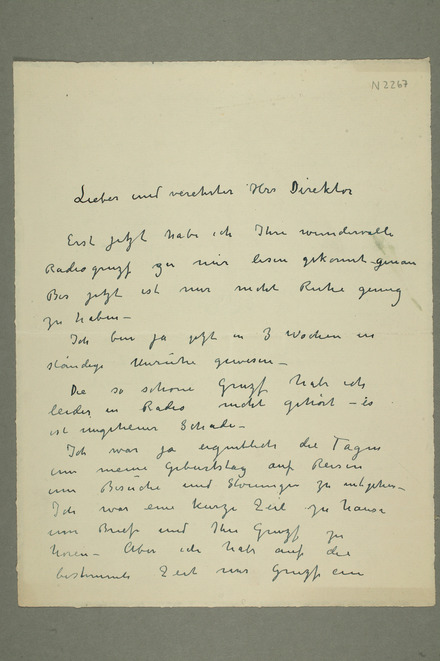 N2267
Lieber und verehrter Herr Direktor
Erst jetzt habe ich Ihre wundervolle
Radiogruss zu mir lesen gekonnt – genau
Bis jetzt ist nur nicht Ruhe genug
zu haben –
Ich bin ja jetzt in 3 Wochen in
ständige Unruhe gewesen –
Die so schöne Gruss habe ich
leider in Radio nicht gehört – es
ist ungeheuer Schade –
Ich war ja eigentlich die Tagen
um meine Geburtstag auf Reisen
um Besuche und Störungen zu entgehen –
Ich war eine kurze Zeit zu Hause
um Briefe und Ihre Gruss zu
hören – Aber ich habe auf die
bestimmte Zeit nur Gruss ein